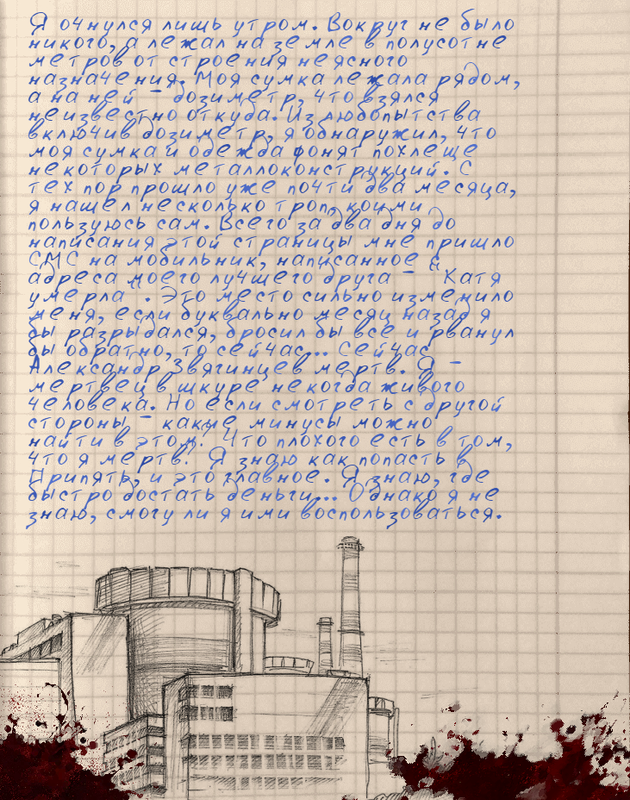 Я очнулся лишь утром. Вокруг не было
никого, а лежал на земле в полусотне
метров от строения неясного
назначения. Моя сумка лежала рядом,
а на ней - дозиметр, что взялся
неизвестно откуда. Из любопытства
включив дозиметр, я обнаружил, что
моя сумка и одежда фонят похлеще
некоторых металлоконструкций. С
тех пор прошло уже почти два месяца,
я нашел несколько троп, коими
пользуюсь сам. Всего за два дня до
написания этой страницы мне пришло
СМС на мобильник, написанное с
адреса моего лучшего друга - "Катя
умерла". Это место сильно изменило
меня, если буквально месяц назад я
бы разрыдался, бросил бы все и рванул
бы обратно, то сейчас... Сейчас
Александр Звягинцев мертв. Я -
мертвец в шкуре некогда живого
человека. Но если смотреть с другой
стороны - какие минусы можно
найти в этом? Что плохого есть в том,
что я мертв? Я знаю как попасть в
Припять, и это главное. Я знаю, где
быстро достать деньги... Однако я не
знаю, смогу ли я ими воспользоваться.